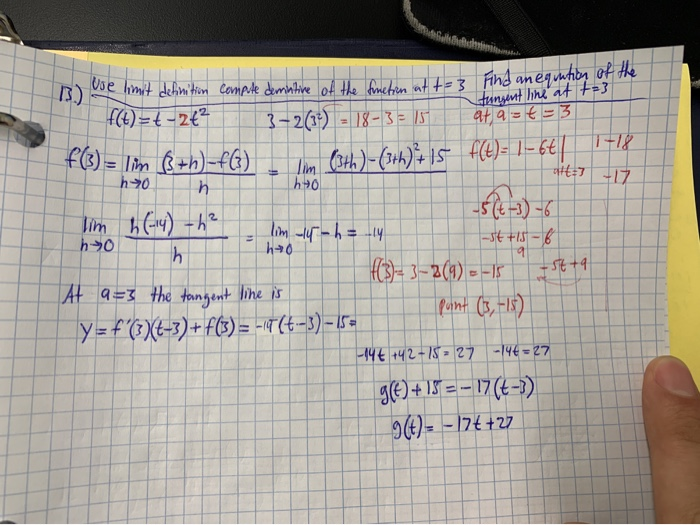 13.) Use limit definition compute derivative of the function at t=3 Find an equation of the tangent line at t=3
f(t)=t-2t² 3-2(3²) = 18-3 = 15 at, a = t = 3
f'(3) = lim h→0 (3+h)-f(3) / h = lim h→0 (3+h)-(3+h)²+15 f(t)= 1-6t | at t=3 1-18
-17
lim h→0 h(-14) -h² / h = lim h→0 -14-h = -14
-5(t-3)-6
-5t+15-6
9
f(3)= 3-2(9) = -15 -5t+9
At a=3 the tangent line is
point (3,-15)
y = f'(3)(t-3)+f(3) = -14(t-3)-15=
-14t +42-15 = 27 -14t=27
g(t)+15 = -17(t-3)
g(t)= -17t+27